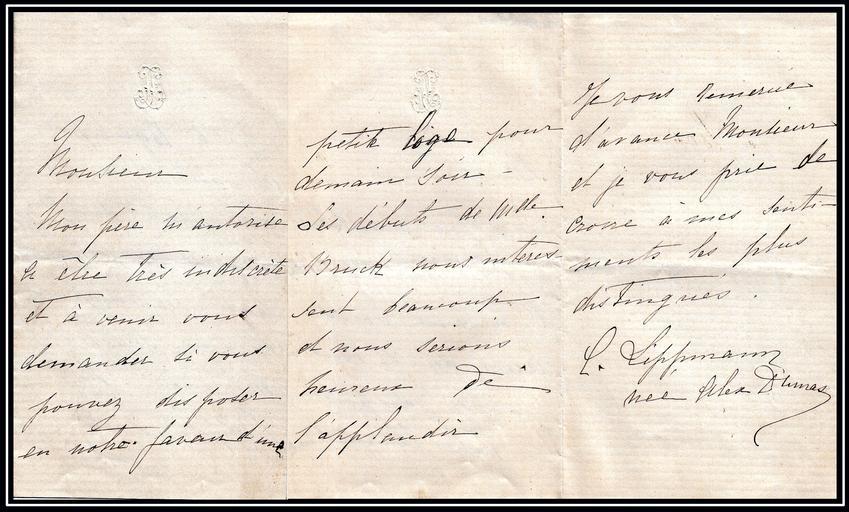 Monsieur
Mon père m'autorise
à être très indiscrète
et à venir vous
demander si vous
pouvez disposer
en notre faveur d'une
petite loge pour
demain soir –
Les débuts de Mlle
Bruck nous intéres
sent beaucoup
et nous serions
heureux de
l'applaudir
Je vous remercie
d'avance Monsieur
et je vous prie de
croire à mes senti–
ments les plus
distingués.
C. Lippmann
née Alex Dumas